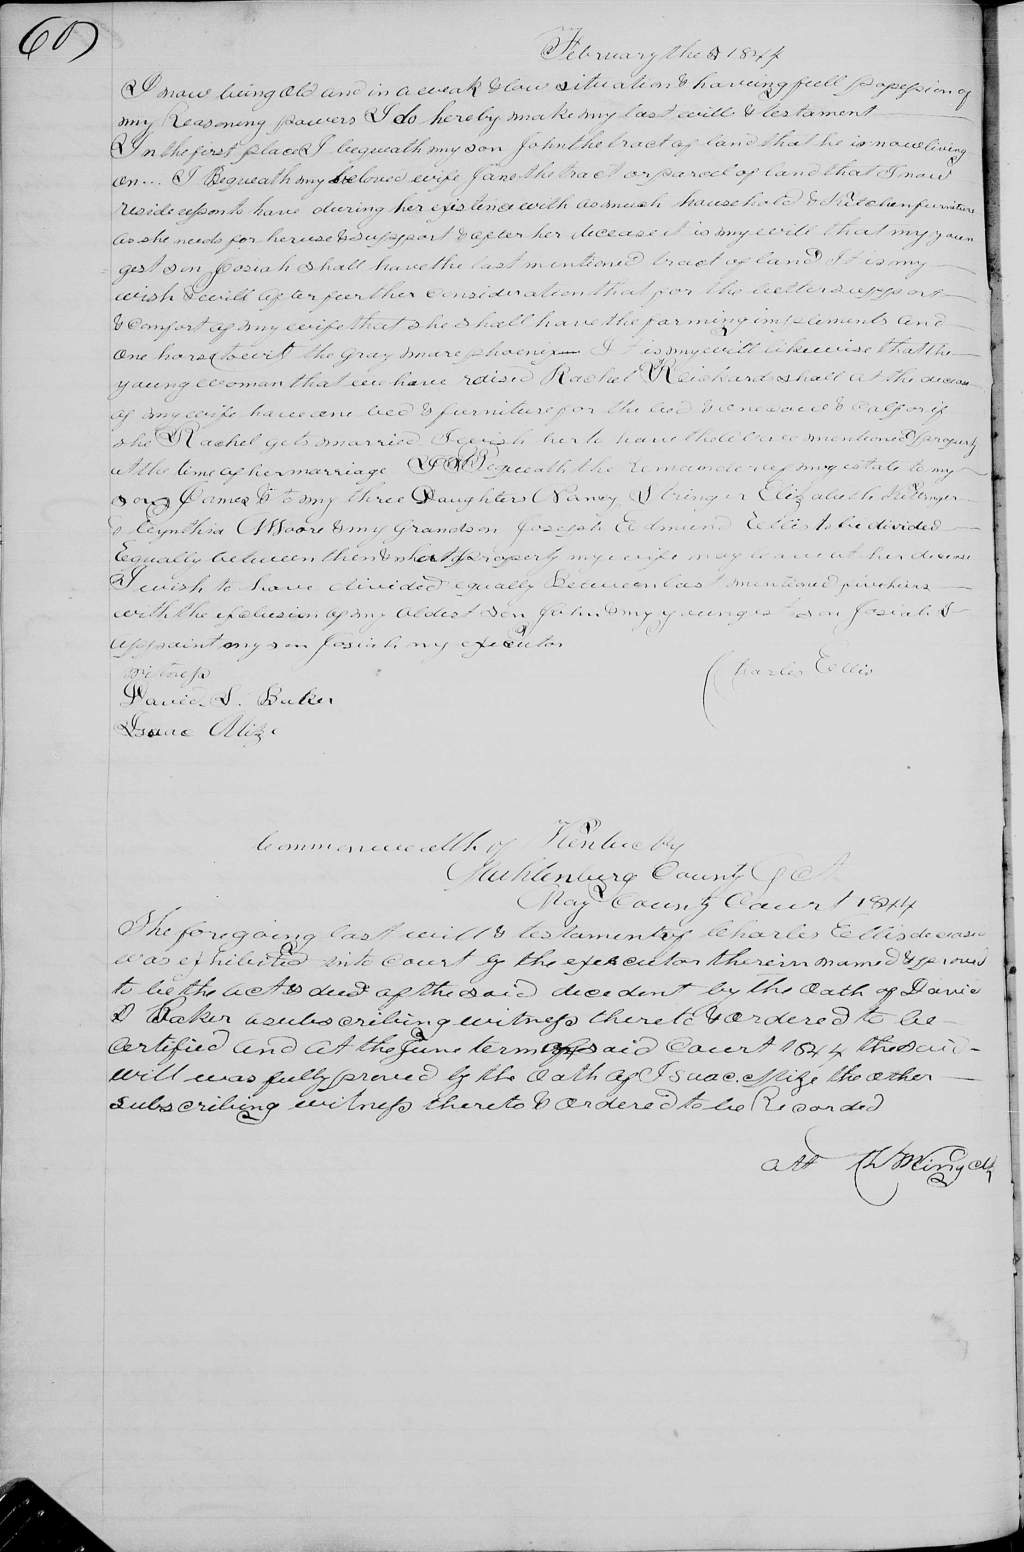 60
February the 1844
I now being old and in a weak & low situation & haveing full possession of
my Reasoning powers I do hereby make my last will & testament
In the first place I bequeath my son John the tract of land that he is now living
on... I Bequeath my beloved wife Jane the tract or parcel of land that I now
reside upon to have during her existence with as much household & Kitchen furniture
as she needs for her use & support & after her decease it is my will that my youn
gest son Josiah shall have the last mentioned tract of land It is my
wish & will after further consideration that for the better support
& comfort of my wife that she shall have the farming implements and
one horse to wit the gray mare phoenix It is my will likewise that the
young woman that we have raised Rachel Reichard shall at the decease
of my wife have one bed & furniture for the bed & one cow & calf or if
she Rachel gets married I wish her to have the above mentioned property
at the time of her marriage I Bequeath the remainder of my estate to my
son James & to my three Daughters Nancy Stringer Elizabeth
& Cynthia Moore & my Grandson Joseph Edmund Ellis to be divided
Equally between them & what property my wife may leave at her decease
I wish to have divided equally Between last mentioned five heirs
with the exclusion of my oldest son John & my youngest son Josiah I
appoint my son Josiah my executor
witness
Charles Ellis
David S. Baker
Isaac Mize
Commonwealth of Kentucky
Muhlenburg County Sct
May County Court 1844
The foregoing last will & testament of Charles Ellis deceased
was exhibited into court by the executor therein named & proved
to be the act & deed of the said decedent by the oath of David
S Baker a subscribing witness thereto & ordered to be
certified and at the June term of said court 1844 the said
will was fully proved by the oath of Isaac Mize the other
subscribing witness thereto & ordered to be Recorded
att Wing clk